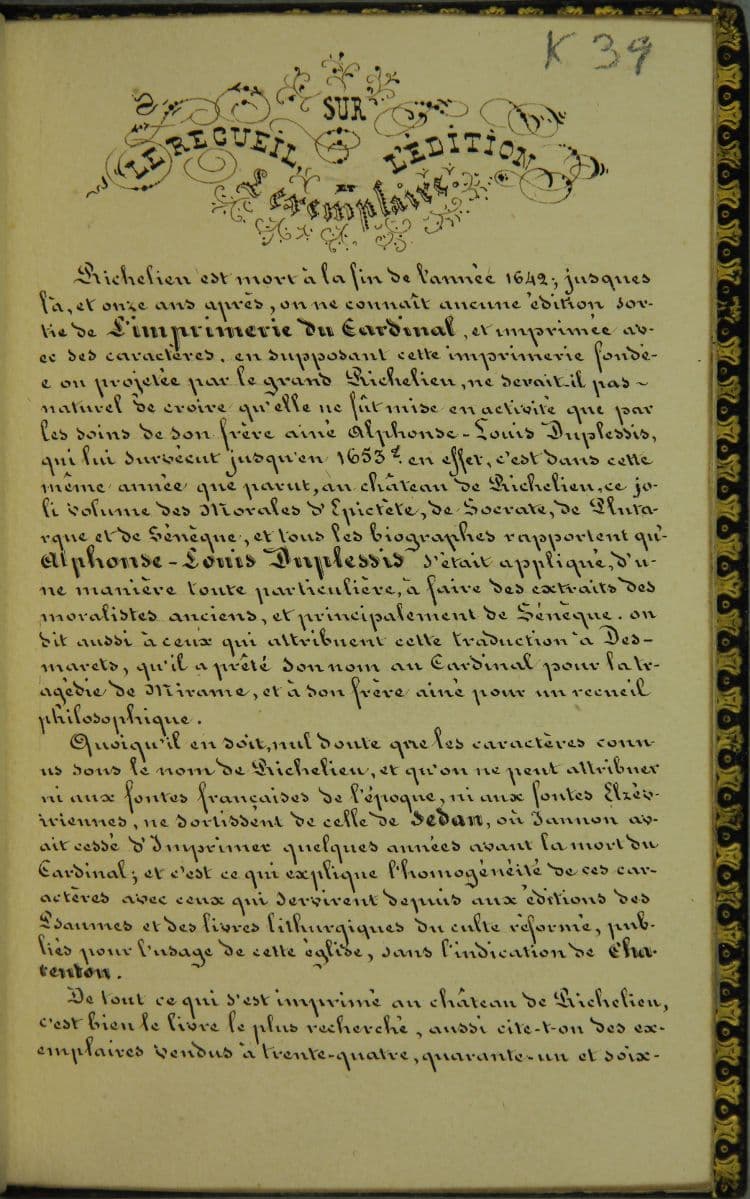 K 39
SUR
LE RECUEIL, L'ÉDITION
ET
L'exemplaire.
Richelieu est mort à la fin de l'année 1642; jusques
là, et onze ans après, on ne connaît aucune édition sor-
tie de L'imprimerie du Cardinal, et imprimée av-
ec ses caractères. en supposant cette imprimerie fondé-
e ou projetée par le grand Richelieu, ne serait-il pas ~
naturel de croire qu'elle ne fût mise en activité que par
les soins de son frère ainé Alphonse-Louis Duplessis,
qui lui survécut jusqu'en 1653? en effet, c'est dans cette
même année que parut, au château de Richelieu, ce jo-
li volume des Morales d'Epictète, de Socrate, de Pluta-
rque et de Sénèque, et tous les biographes rapportent qu'
Alphonse-Louis Duplessis s'était appliqué, d'u-
ne manière toute particulière, à faire des extraits des
moralistes anciens, et principalement de Sénèque. on
dit aussi à ceux qui attribuent cette traduction à Des-
marets, qu'il a prêté son nom au Cardinal pour la tr-
agédie de Mirame, et à son frère ainé pour un recueil
philosophique.
Quoiqu'il en soit, nul doute que les caractères conn-
us sous le nom de Richelieu, et qu'on ne peut attribuer
ni aux fontes françaises de l'époque, ni aux fontes Elzév-
iriennes, ne sortissent de celle de Sedan, où Jannon av-
ait cessé d'Imprimer quelques années avant la mort du
Cardinal; et c'est ce qui explique l'homogénéité de ces car-
actères avec ceux qui servirent depuis aux éditions des
Psaumes et des livres lithurgiques du culte réformé, pub-
liés pour l'usage de cette église, sans l'indication de Cha-
renton.
De tout ce qui s'est imprimé au château de Richelieu,
c'est bien le livre le plus recherché, aussi cite-t-on des ex-
emplaires vendus à trente-quatre, quarante-un et soix-